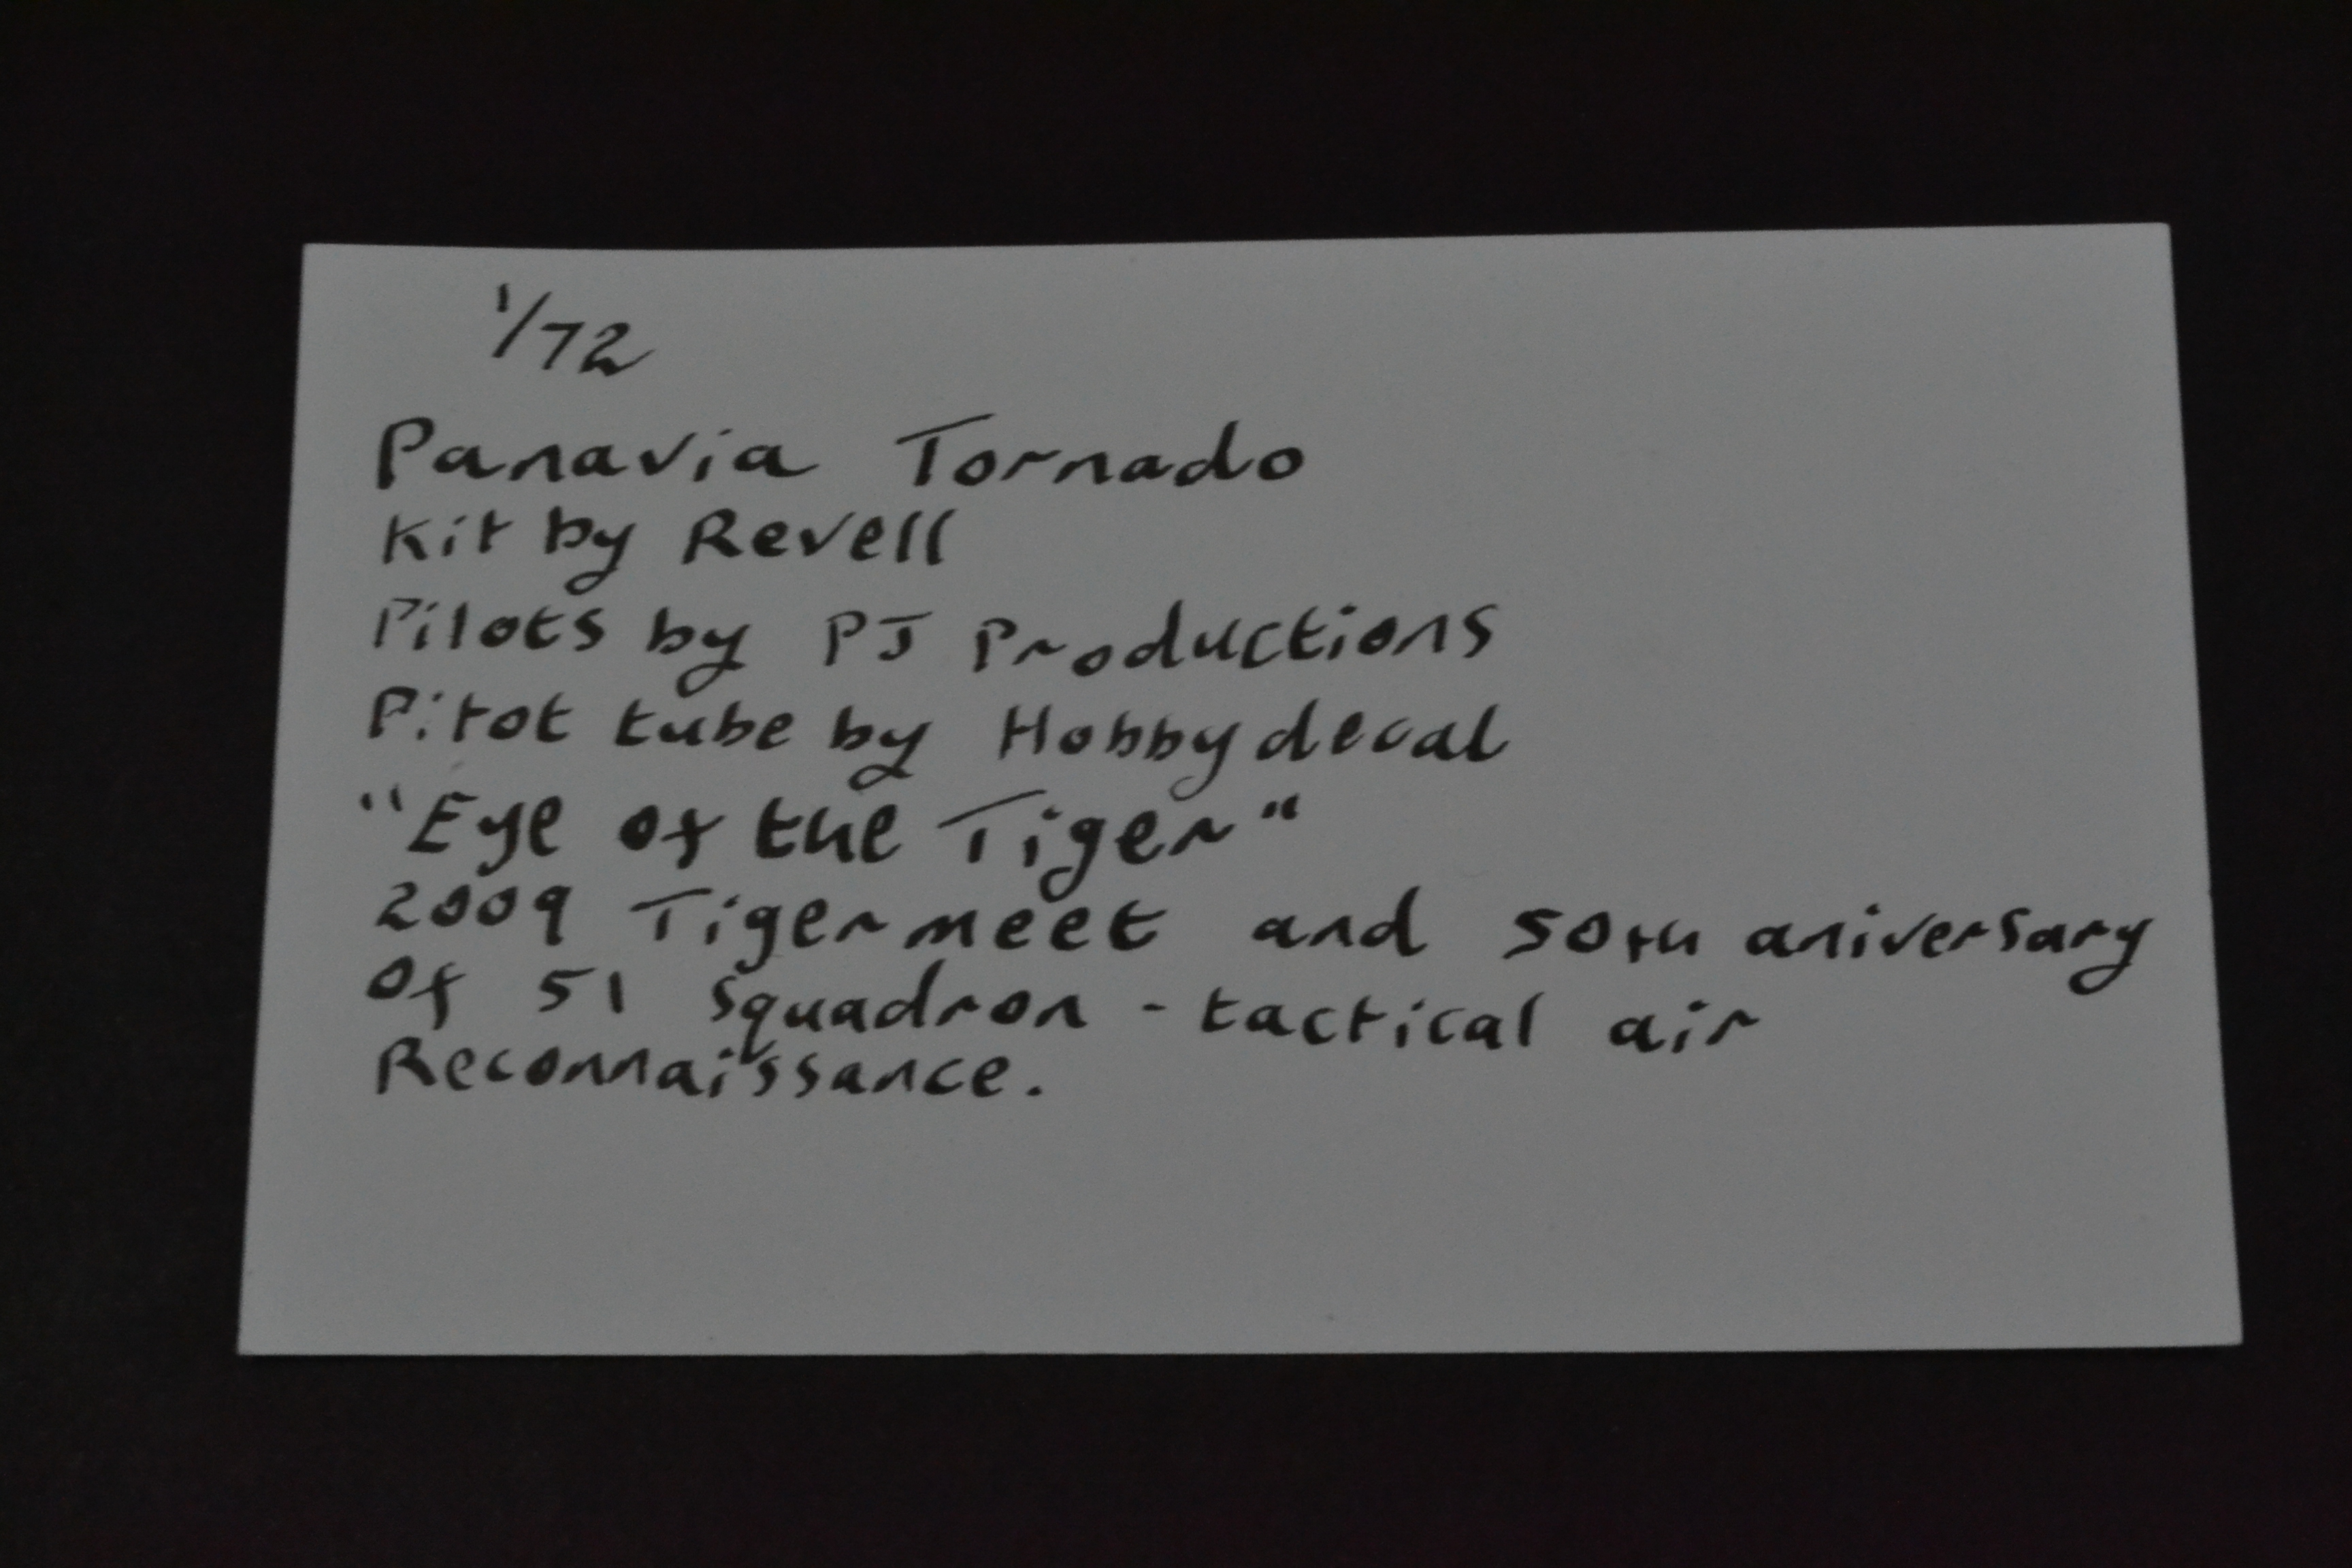 1/72
Panavia Tornado
Kit by Revell
Pilots by PJ Productions
Pitot tube by Hobbydecal
"Eye of the Tiger"
2009 Tigermeet and 50th aniversary
Of 51 Squadron - tactical air
Reconnaissance.